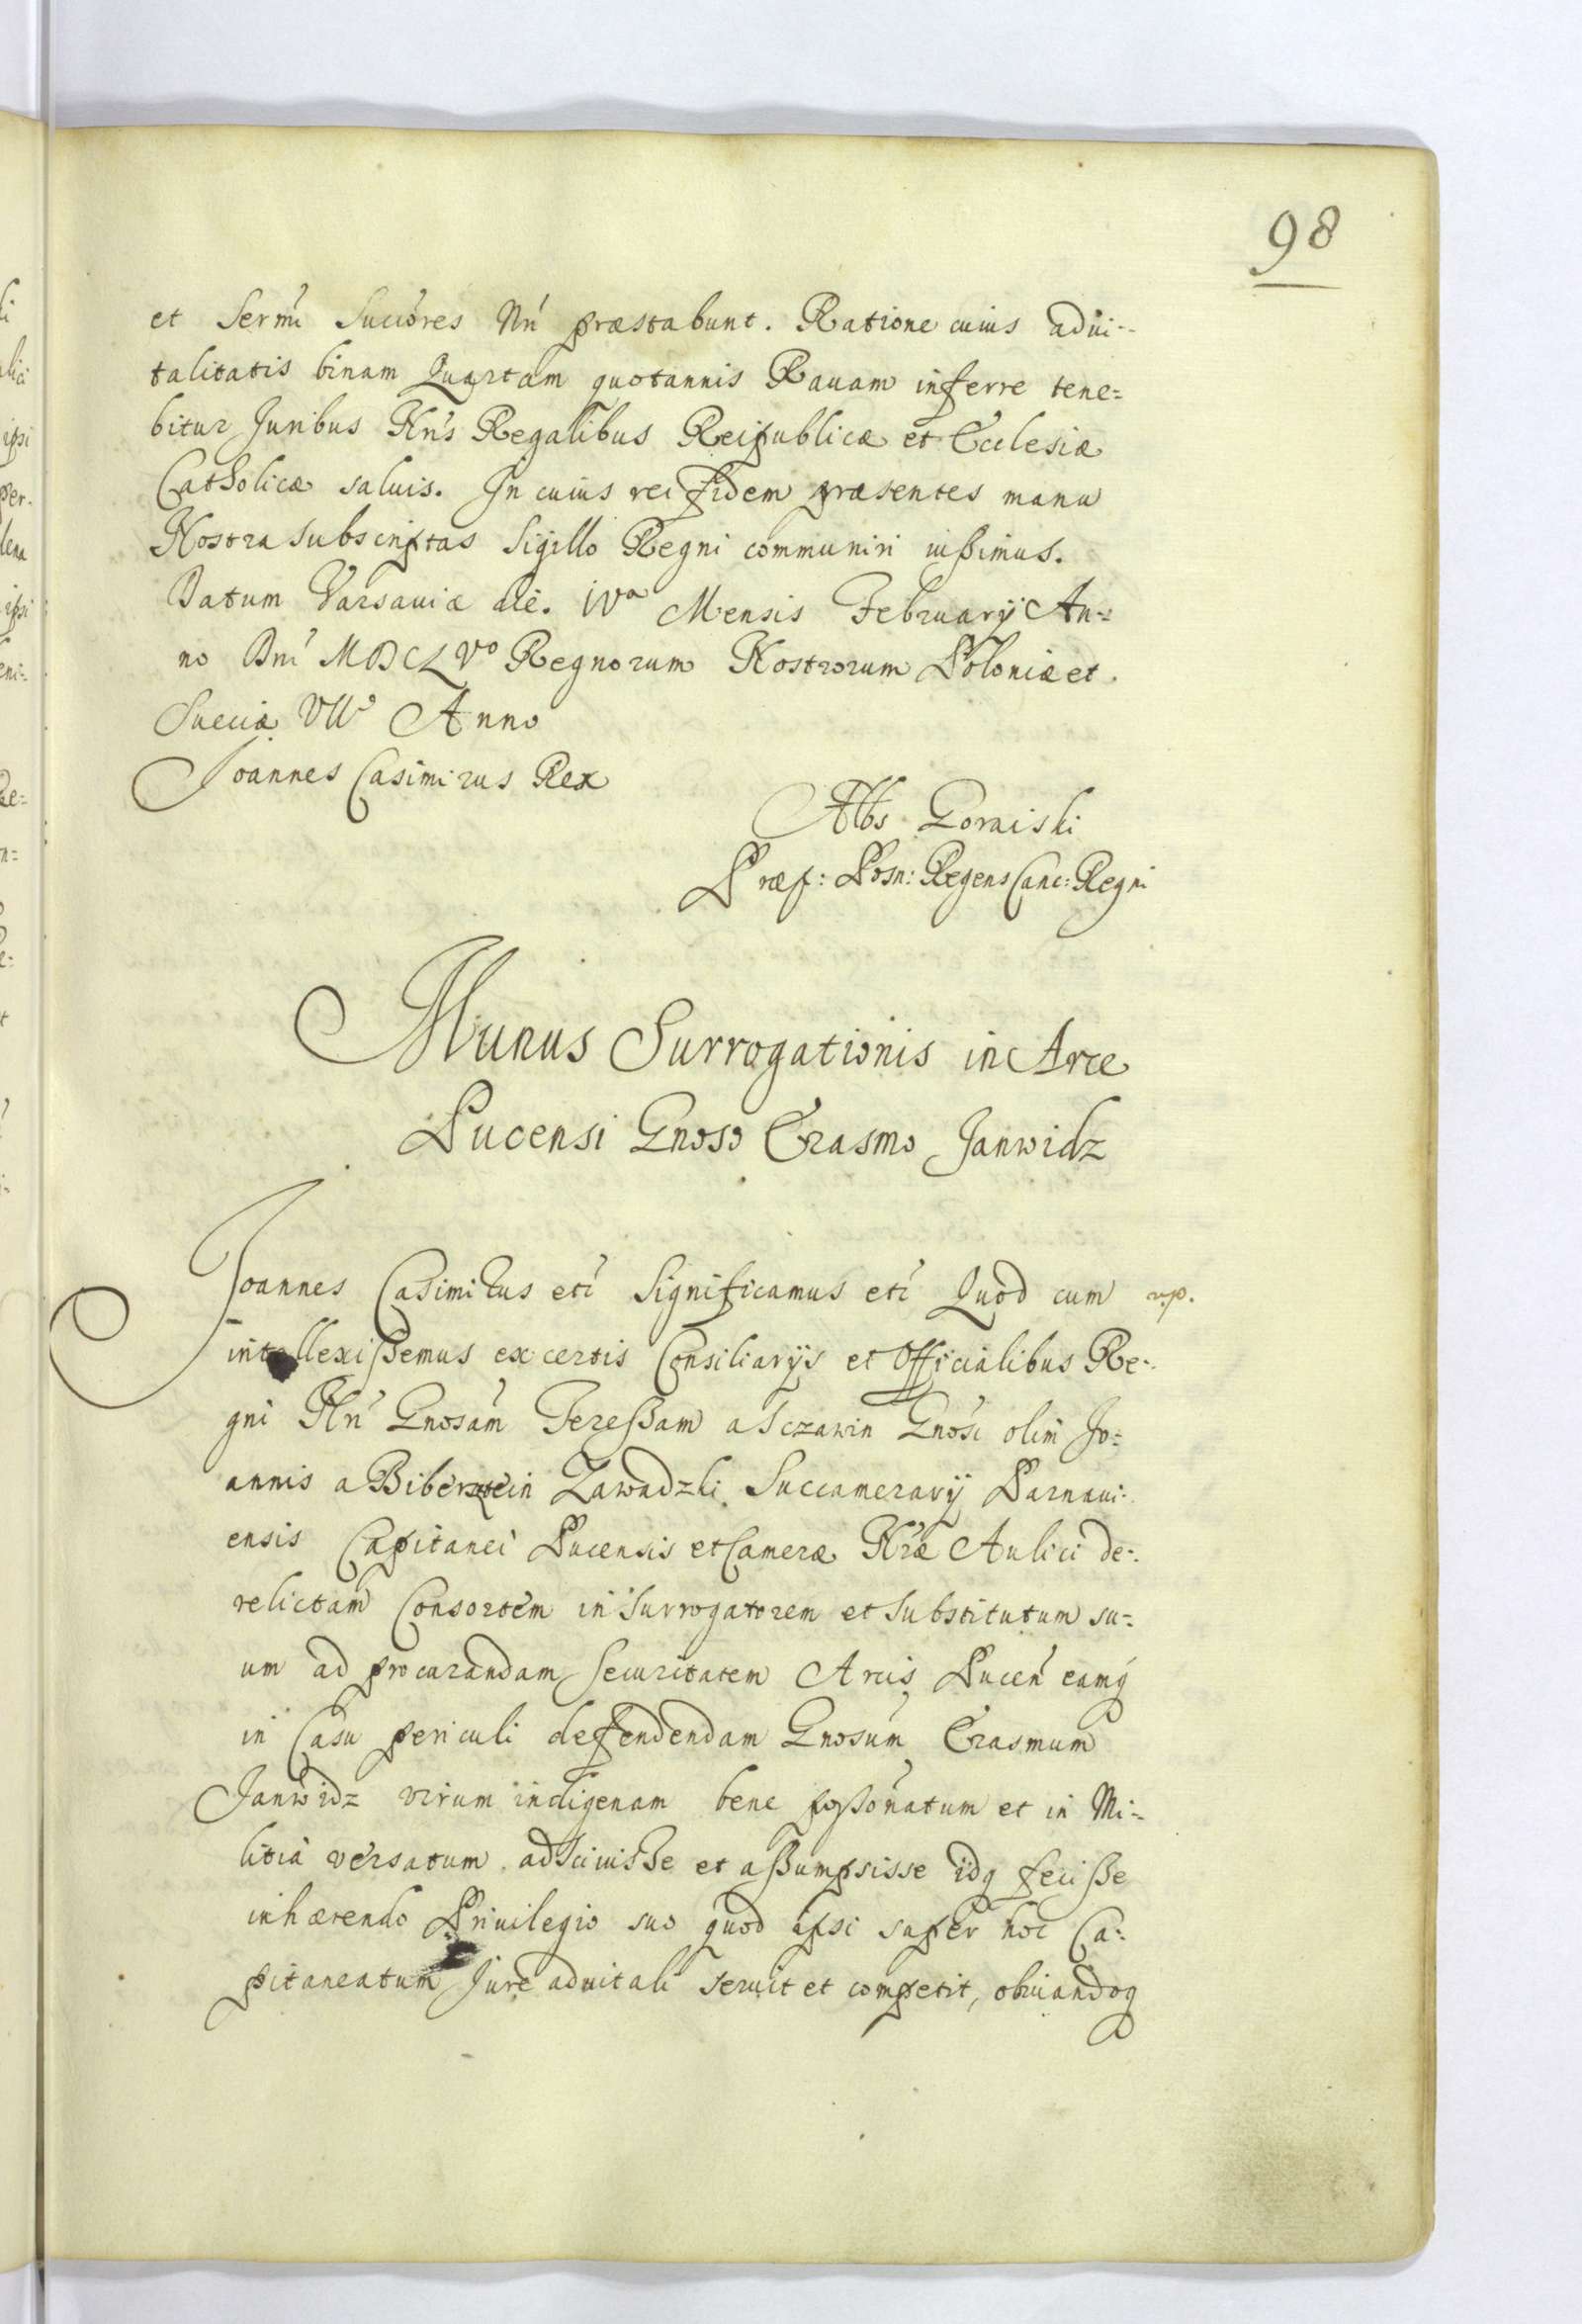 98
et Sermi Succores Nri præstabunt. Ratione cuius advi-
talitatis binam Quartam quotannis Rauam inferre tene=
bitur Juribus Nris Regalibus Reipublicæ et Ecclesiæ
Catholicæ saluis. In cuius rei fidem præsentes manu
Nostra subscriptas Sigillo Regni communiri iußimus.
Datum Varsauiæ die. IVa Mensis February An=
no Dni MDCLVo Regnorum Nostrorum Poloniæ et
Sueciæ VIIo Anno
Joannes Casimirus Rex
Albs Goraiski
Præf: Posn: Regens Canc: Regni
Munus Surrogationis in Arce
Pucensi Gnoso Erasmo Janwidz
Joannes Casimirus etc Significamus etc Quod cum
intellexißemus ex certis Consiliarijs et Officialibus Re-
gni Nri Gnosam Tereßam a Sczawin Gnosi olim Jo=
annis a Biberztein Zawadzki Succamerarij Parnaui-
ensis Capitanei Pucensis et Cameræ Nræ Aulici de-
relictam Consortem in Surrogatorem et Substitutum su=
um ad procurandam Securitatem Arcis Pucen eamq
in Casu periculi defendendam Gnosum Erasmum
Janwidz virum indigenam bene poßonatum et in Mi=
litia versatum adsciuisse et aßumpsisse idq feciße
inhærendo Priuilegio suo quod ipsi super hoc Ca=
pitaneatum Jure aduitali seruit et competit, obuiandoq